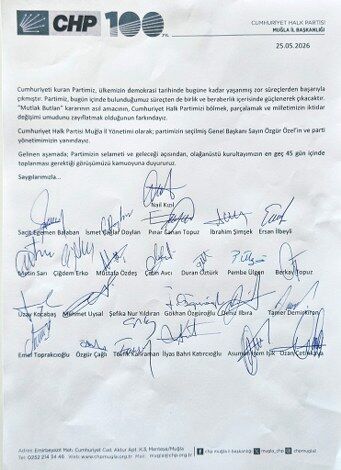 CHP 100
CUMHURİYET HALK PARTİSİ
MUĞLA İL BAŞKANLIĞI
25.05.2026
Cumhuriyeti kuran Partimiz, ülkemizin demokrasi tarihinde bugüne kadar yaşanmış zor süreçlerden başarıyla
çıkmıştır. Partimiz, bugün içinde bulunduğumuz süreçten de birlik ve beraberlik içerisinde güçlenerek çıkacaktır.
"Mutlak Butlan" kararının asıl amacının, Cumhuriyet Halk Partimizi bölmek, parçalamak ve milletimizin iktidar
değişimi umudunu zayıflatmak olduğunun farkındayız.
Cumhuriyet Halk Partisi Muğla İl Yönetimi olarak; partimizin seçilmiş Genel Başkanı Sayın Özgür Özel'in ve parti
yönetimimizin yanındayız.
Gelinen aşamada; Partimizin selameti ve geleceği açısından, olağanüstü kurultayımızın en geç 45 gün içinde
toplanması gerektiği görüşümüzü kamuoyuna duyururuz.
Saygılarımızla...
Nail Kızıl
Saçit Egemen Balaban İsmet Çağlar Doylan Pınar Canan Topuz İbrahim Şimşek Ersan İlbeyli
Metin Sarı Çiğdem Erko Mustafa Özdeş Çetin Avcı Duran Öztürk Pembe Ülgen Berkay Topuz
Uzay Kocabaş Mehmet Uysal Şefika Nur Yıldıran Gökhan Özgüroğlu Deniz Tamer Demirkıran
Emel Toprakcıoğlu Özgür Çağlı Tevfik Kahraman İlyas Bahri Katırcıoğlu Işık Ozan
Adres: Emirbeyazıt Mah. Cumhuriyet Cad. Aktur Apt. K:3, Menteşe/Muğla
Tel: 0252 214 34 46 Web: www.chpmugla.org.tr Mail: mugla@chp.org.tr
chp muğla il başkanlığı mugla_chp chp.mugla